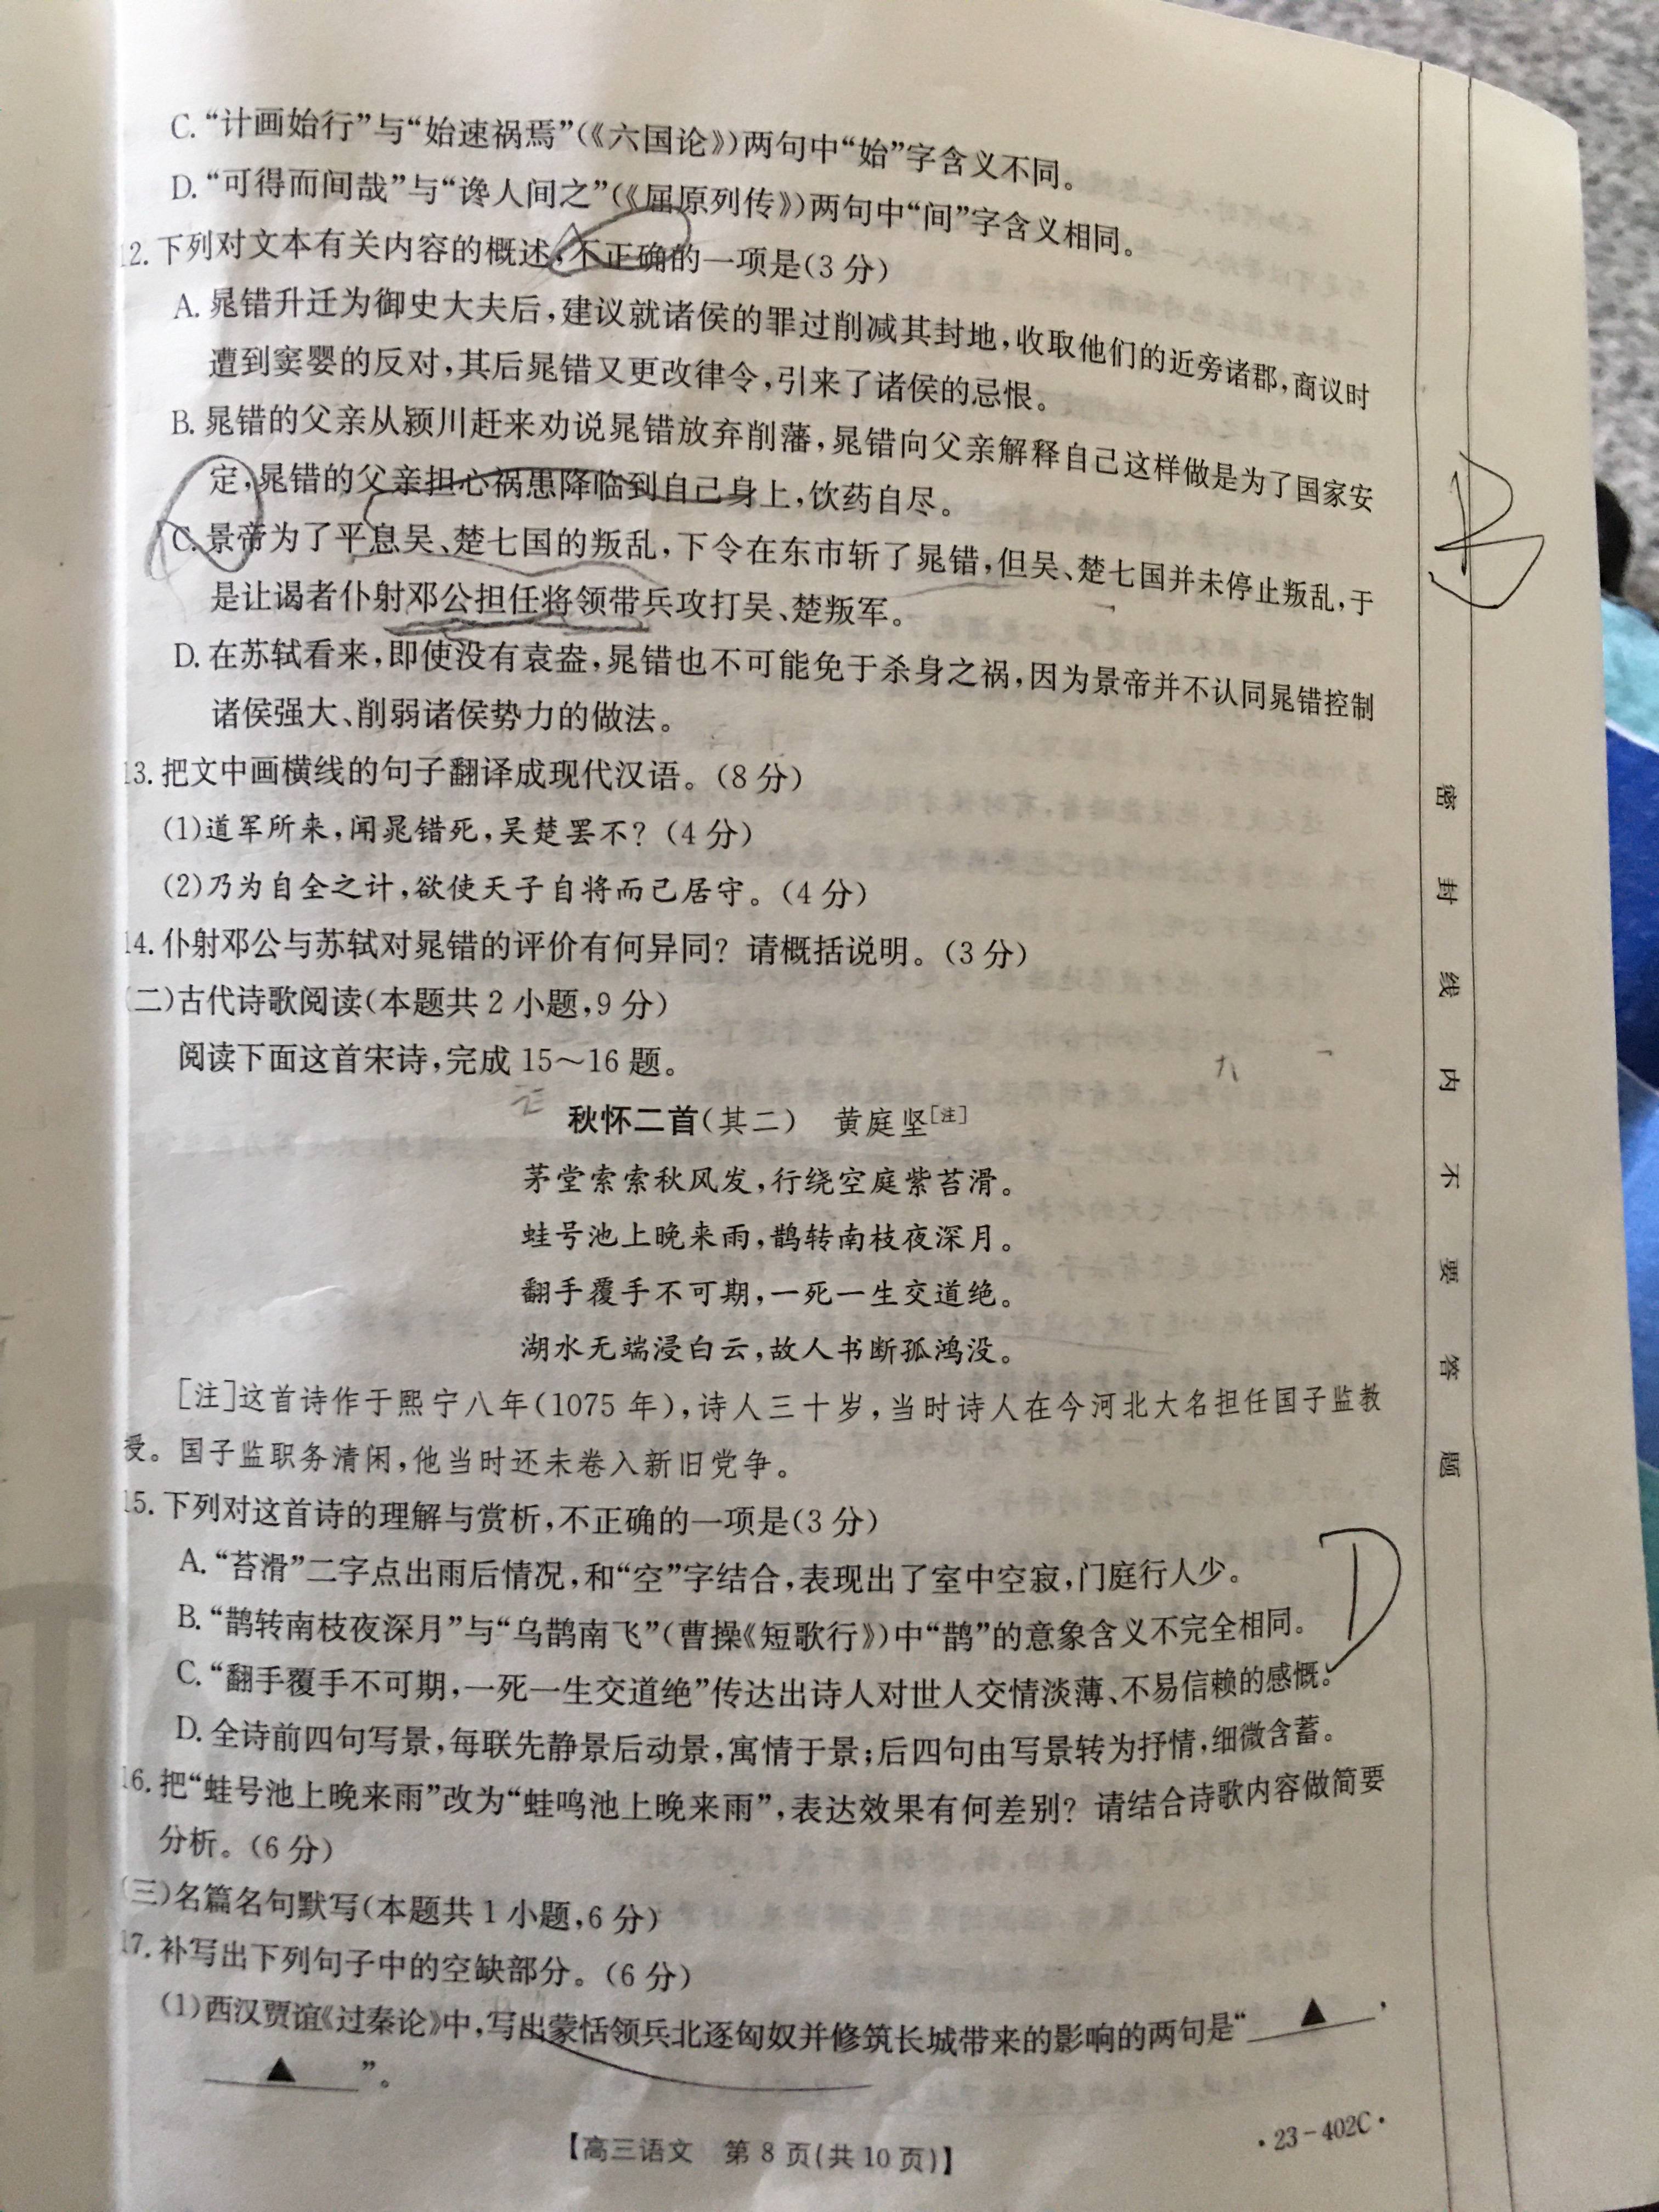 C.“计画始行”与“始速祸焉”(《六国论》)两句中“始”字含义不同。
D.“可得而间哉”与“谗人间之”(《屈原列传》)两句中“间”字含义相同。
12.下列对文本有关内容的概述,不正确的一项是(3分)
A.晁错升迁为御史大夫后,建议就诸侯的罪过削减其封地,收取他们的近旁诸郡,商议时
遭到窦婴的反对,其后晁错又更改律令,引来了诸侯的忌恨。
B.晁错的父亲从颍川赶来劝说晁错放弃削藩,晁错向父亲解释自己这样做是为了国家安
定,晁错的父亲担心祸患降临到自己身上,饮药自尽。
C.景帝为了平息吴、楚七国的叛乱,下令在东市斩了晁错,但吴、楚七国并未停止叛乱,于
是让谒者仆射邓公担任将领带兵攻打吴、楚叛军。
D.在苏轼看来,即使没有袁盎,晁错也不可能免于杀身之祸,因为景帝并不认同晁错控制
诸侯强大、削弱诸侯势力的做法。
13.把文中画横线的句子翻译成现代汉语。(8分)
(1)道军所来,闻晁错死,吴楚罢不?(4分)
(2)乃为自全之计,欲使天子自将而己居守。(4分)
14.仆射邓公与苏轼对晁错的评价有何异同?请概括说明。(3分)
(二)古代诗歌阅读(本题共2小题,9分)
阅读下面这首宋诗,完成15~16题。
秋怀二首(其二) 黄庭坚[注]
茅堂索索秋风发,行绕空庭紫苔滑。
蛙号池上晚来雨,鹊转南枝夜深月。
翻手覆手不可期,一死一生交道绝。
湖水无端浸白云,故人书断孤鸿没。
[注]这首诗作于熙宁八年(1075年),诗人三十岁,当时诗人在今河北大名担任国子监教
授。国子监职务清闲,他当时还未卷入新旧党争。
15.下列对这首诗的理解与赏析,不正确的一项是(3分)
A.“苔滑”二字点出雨后情况,和“空”字结合,表现出了室中空寂,门庭行人少。
B.“鹊转南枝夜深月”与“乌鹊南飞”(曹操《短歌行》)中“鹊”的意象含义不完全相同。
C.“翻手覆手不可期,一死一生交道绝”传达出诗人对世人交情淡薄、不易信赖的感慨。
D.全诗前四句写景,每联先静景后动景,寓情于景;后四句由写景转为抒情,细微含蓄。
16.把“蛙号池上晚来雨”改为“蛙鸣池上晚来雨”,表达效果有何差别?请结合诗歌内容做简要
分析。(6分)
(三)名篇名句默写(本题共1小题,6分)
17.补写出下列句子中的空缺部分。(6分)
(1)西汉贾谊《过秦论》中,写出蒙恬领兵北逐匈奴并修筑长城带来的影响的两句是“▲,
▲”。
【高三语文 第8页(共10页)】
·23-402C·
密封线内不要答题
B
D